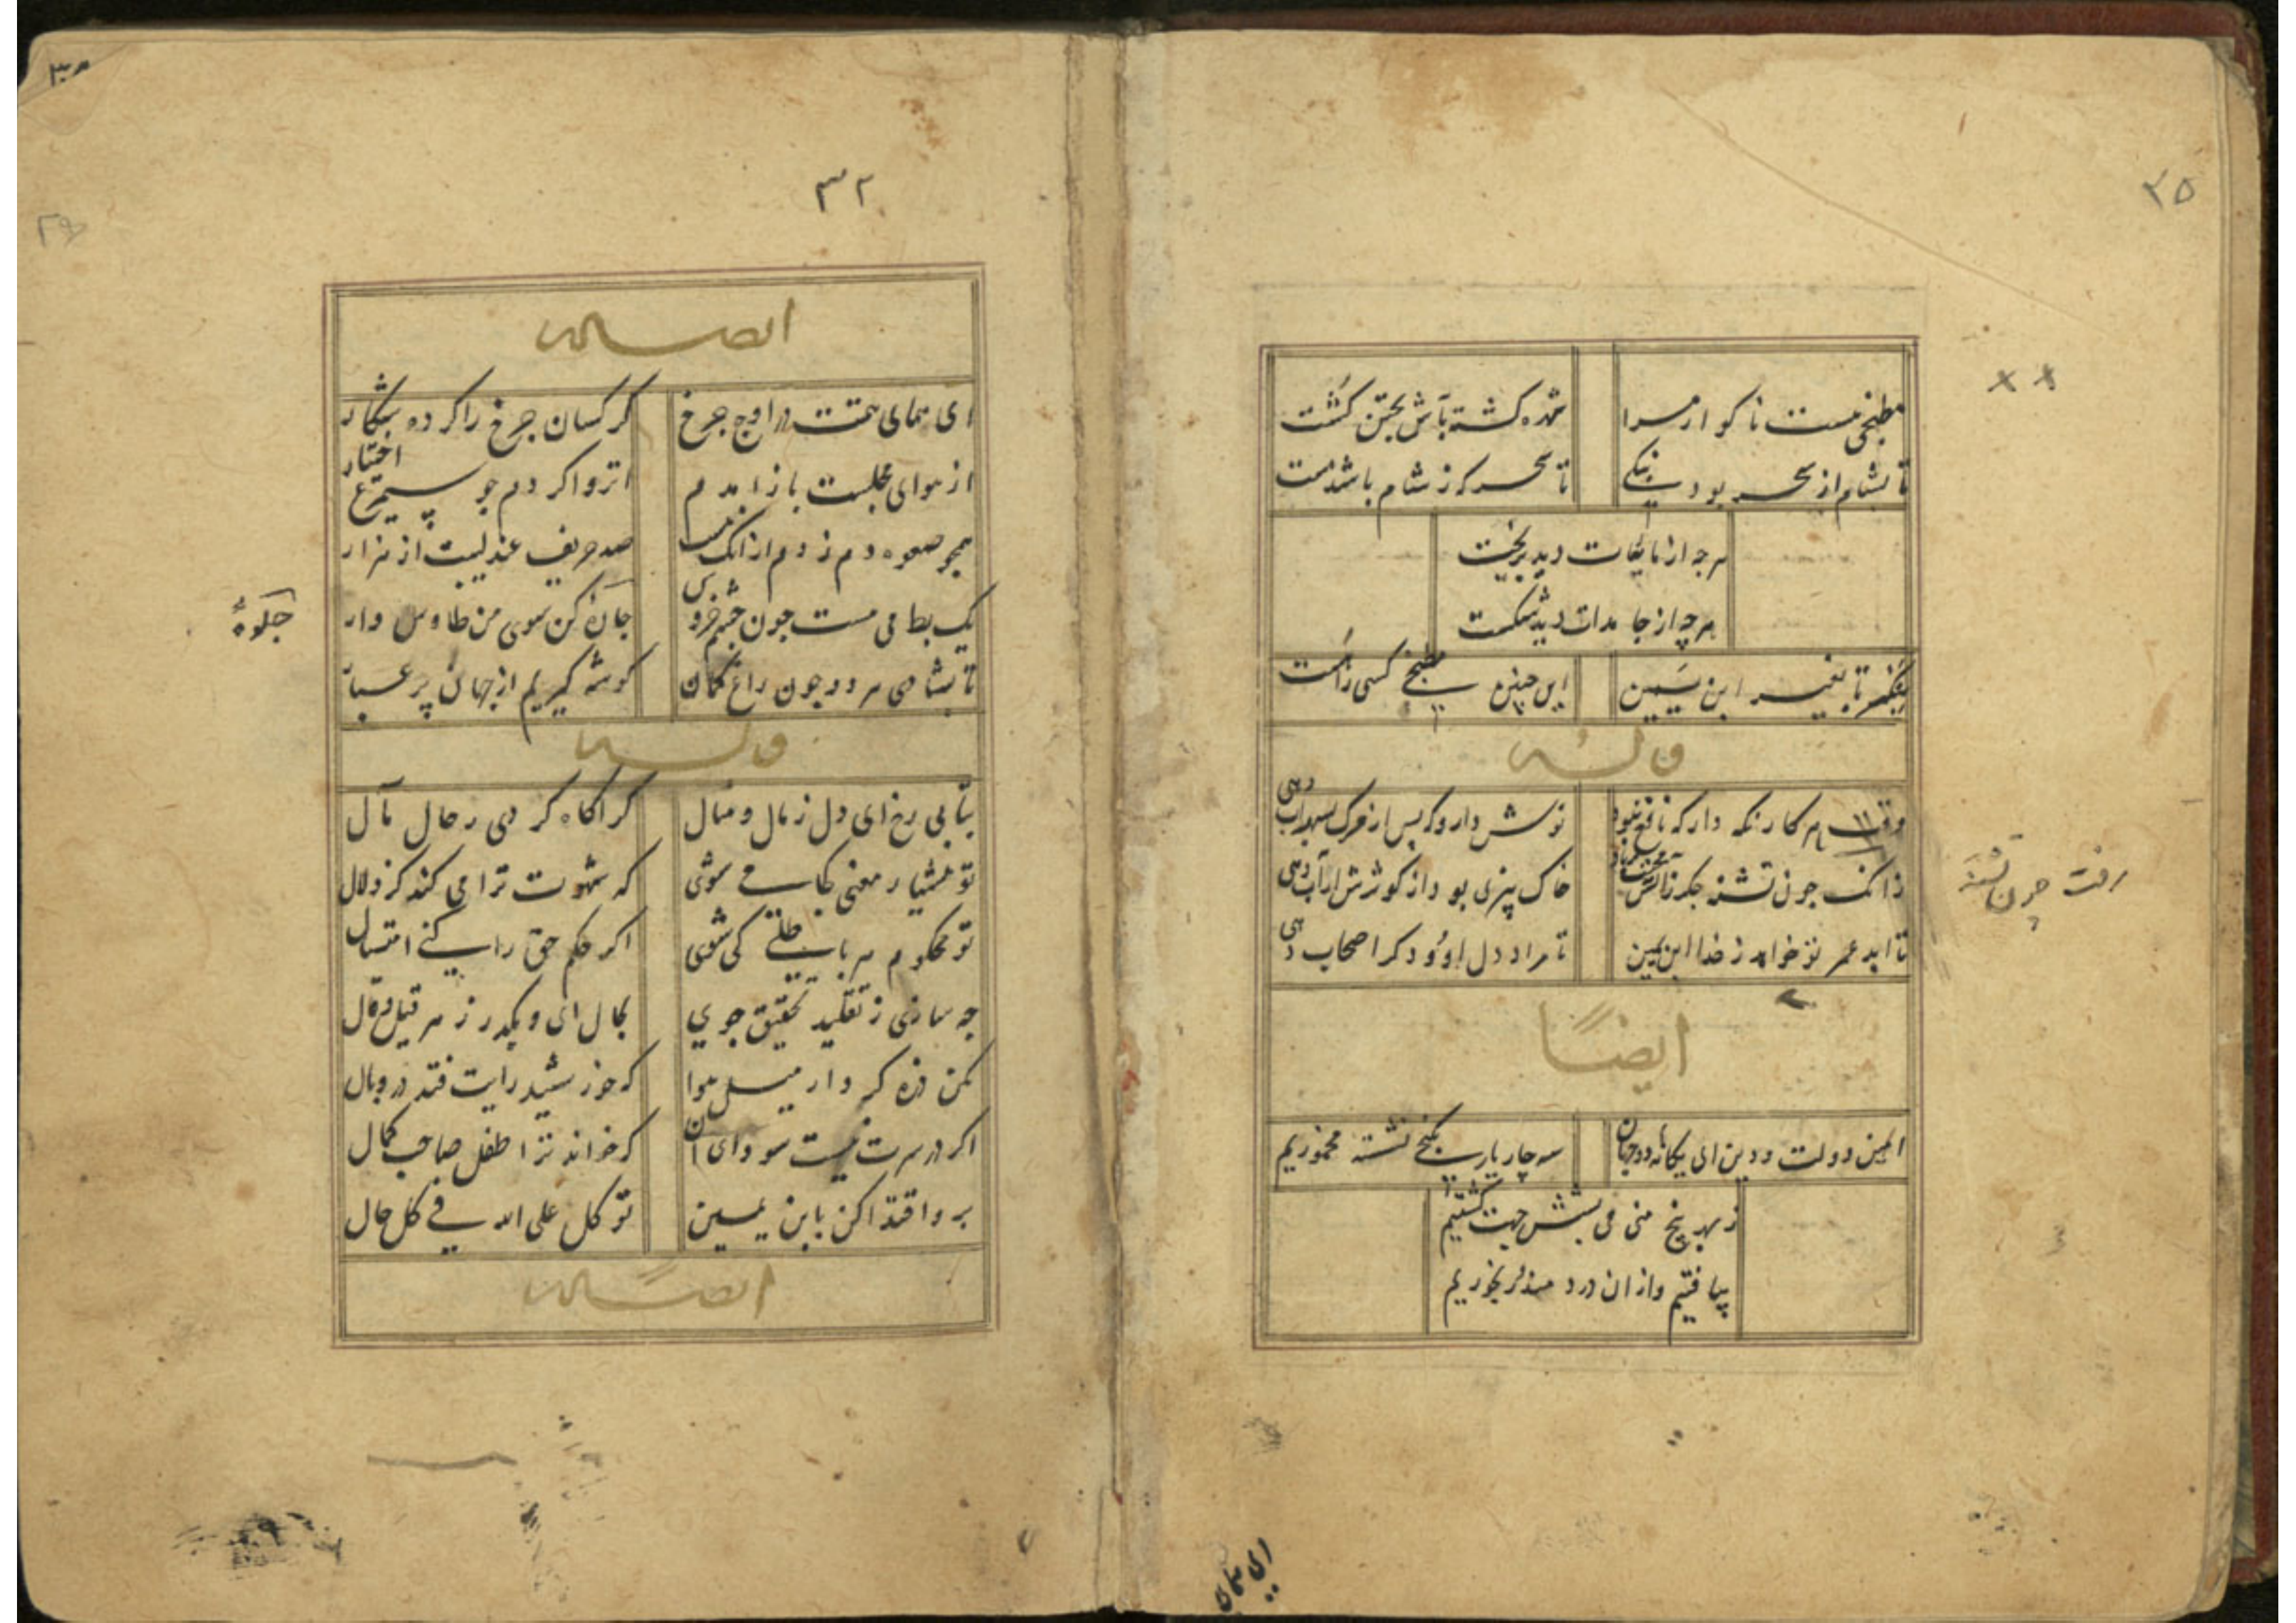 ۲۵
مطبخی هست ناکوار مرا
شده کشته بآش پختن کشت
تا بشام از سحر بود
تا سحرکه ز شام باشد مست
هرچه از مایعات دید بریخت
هرچه از جامدات دید شکست
تا بغیر ابن یمین
این چنین مطبخی کسی را هست
وله
وقت هر کار نکه دار که نافع نبود
نوش دارو که پس از مرک بسهراب دهی
زانک چون تشنه جکر
خاک بهتر بود از کوثرش ار آب دهی
تا ابد عمر تو خواهد ز خدا ابن یمین
تا مراد دل او و دکر اصحاب دهی
رفت چون تشنه
ایضاً
امین دولت و دین ای یکانه دو جهان
سه چار یار بکنجی نشسته مخموریم
ز بهر پنج منی می بشش جهت کشتیم
نیافتیم و از آن درد مند و رنجوریم
ای همای
۳۰
۳۲
۲۹
ایضاً له
ای همای همتت در اوج چرخ
کرکسان چرخ را کرده شکار
از هوای مجلست باز آمدم
انزوا کردم چو سیمرغ اختیار
همچو صعوه دم زدم از انک نیست
صد حریف عندلیبت از هزار
یک بط می مست چون چشم خروس
جلوه کن سوی من طاوس وار
جلوهٔ
تا بشادی هر دو چون زاغ کمان
کوشه کیریم از جهان پر غبار
وله
بتابی رخ ای دل ز مال و منال
کر آکاه کردی ز حال مآل
تو هشیار معنی کجا می شوی
که شهوت ترا می کند کرد لال
تو محکوم هر باطلی کی شوی
اکر حکم حق را کنی امتثال
چه سازی ز تقلید تحقیق جوی
بحال ای و بکذر ز هر قیل و قال
مکن ذره کردار میل هوا
که خورشید رایت فتد در وبال
اکر در سرت نیست سودای آن
که خواند ترا طفل صاحب کمال
برو اقتدا کن بابن یمین
توکل علی الله فی کل حال
ایضاً له